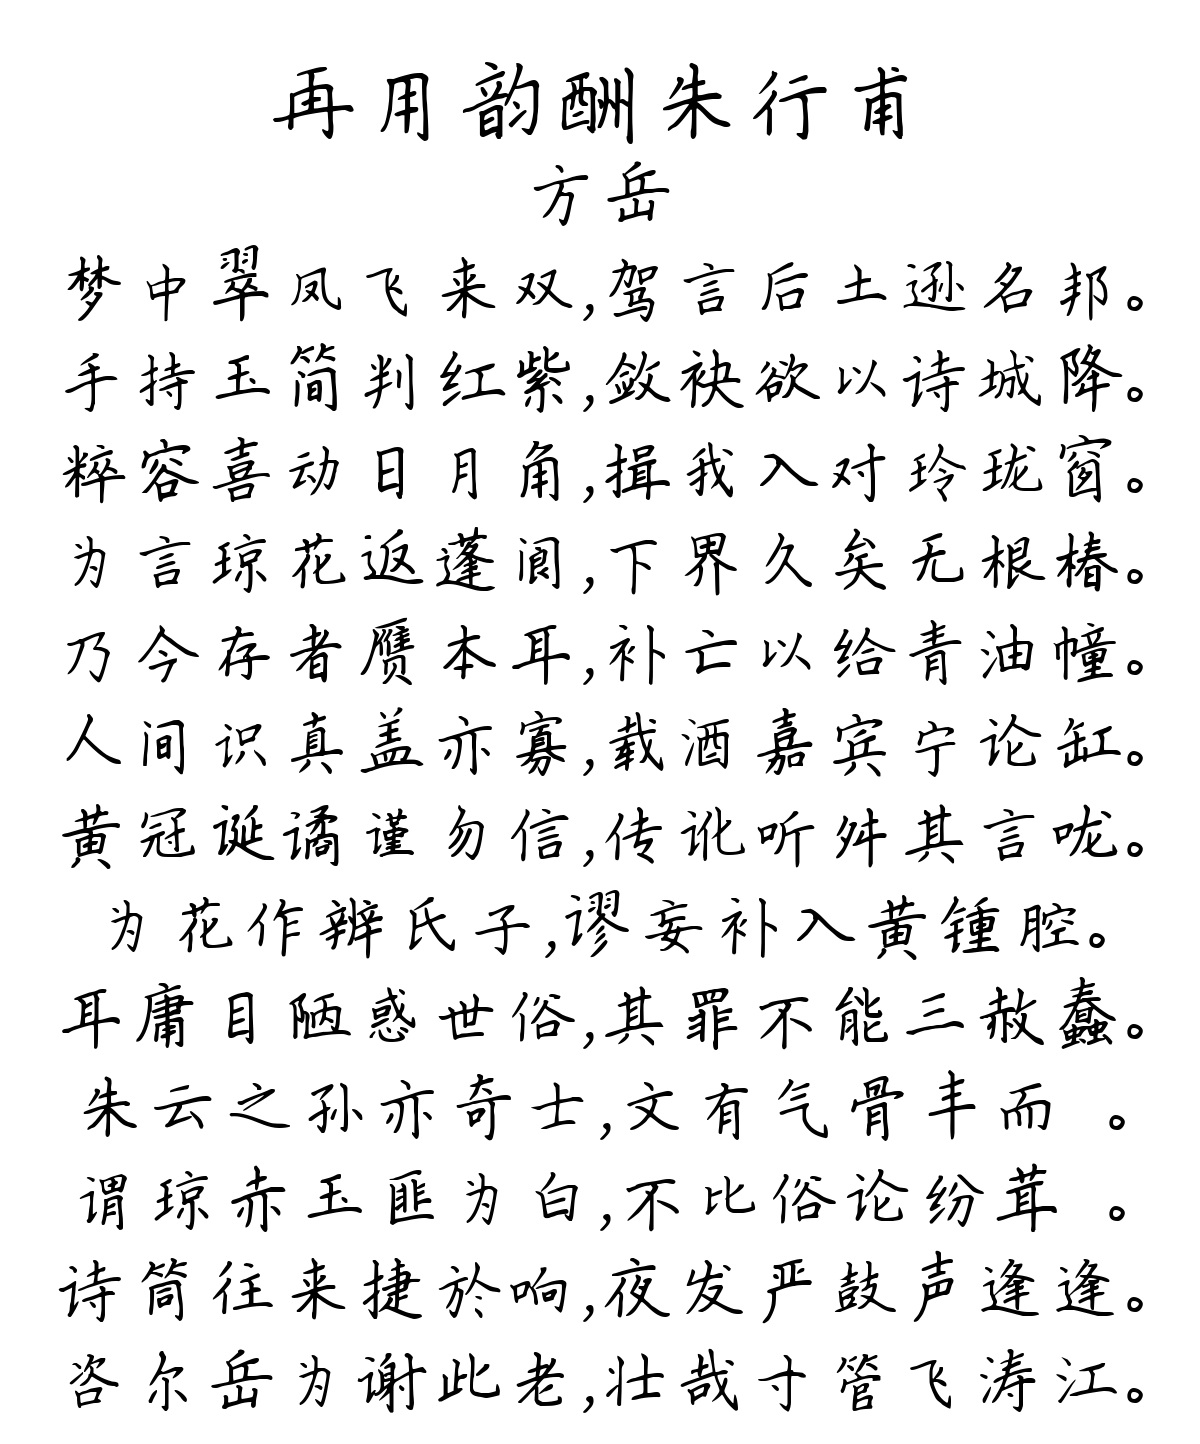 再用韵酬朱行甫
方岳
梦中翠凤飞来双,驾言后土逊名邦。
手持玉简判红紫,敛袂欲以诗城降。
粹容喜动日月角,揖我入对玲珑窗。
为言琼花返蓬阆,下界久矣无根椿。
乃今存者赝本耳,补亡以给青油幢。
人间识真盖亦寡,载酒嘉宾宁论缸。
黄冠诞谲谨勿信,传讹听舛其言咙。
为花作辨氏子,谬妄补入黄锺腔。
耳庸目陋惑世俗,其罪不能三赦蠢。
朱云之孙亦奇士,文有气骨丰而 。
谓琼赤玉匪为白,不比俗论纷茸 。
诗筒往来捷於响,夜发严鼓声逢逢。
咨尔岳为谢此老,壮哉寸管飞涛江。